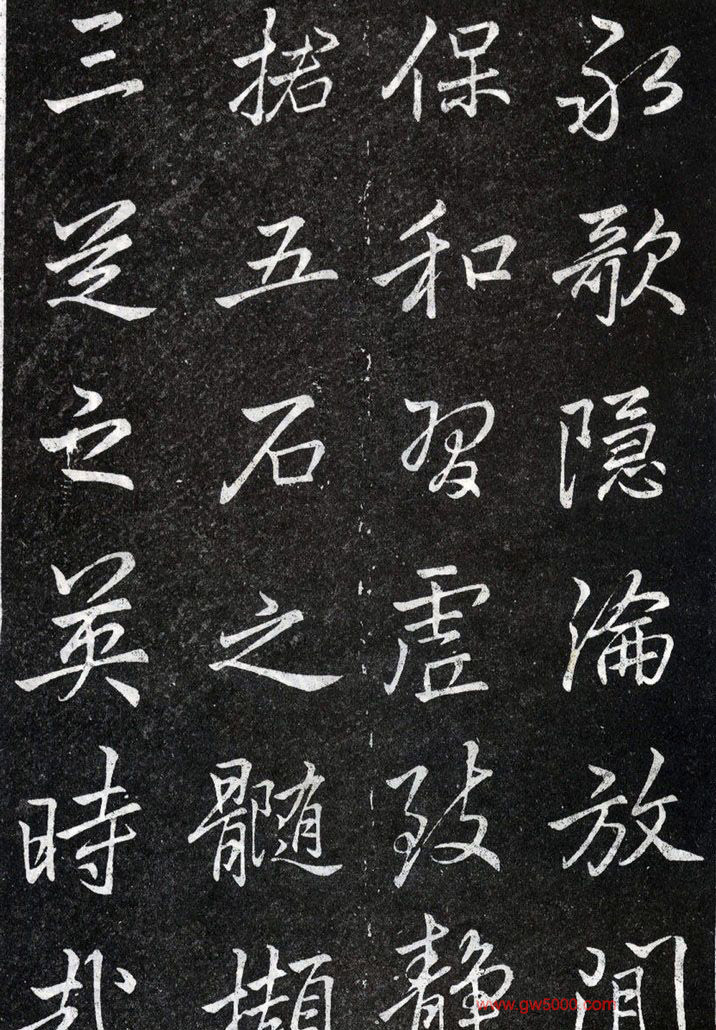 永歌隐淪放閒
保和習虛致靜
捃五石之髓擷
三芝之英時哉
www.gw5000.com